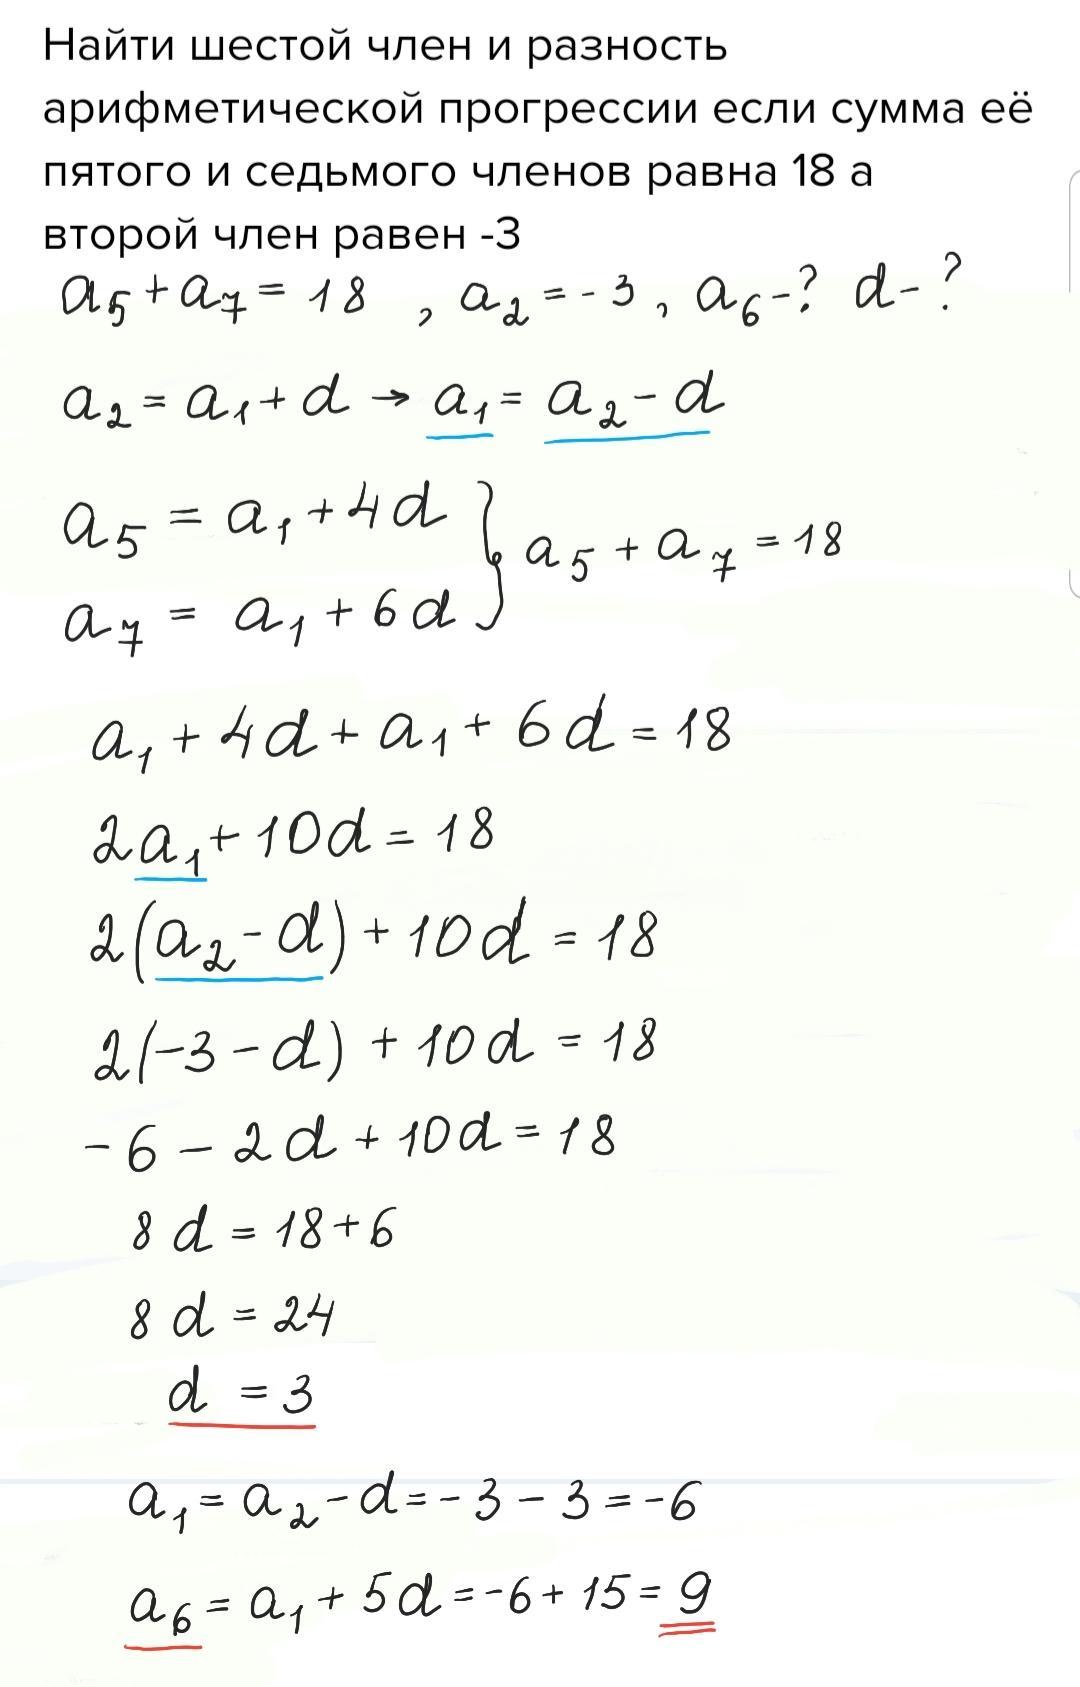 Найти шестой член и разность
арифметической прогрессии если сумма её
пятого и седьмого членов равна 18 а
второй член равен -3
a₅ + a₇ = 18 , a₂ = - 3 , a₆ - ? d - ?
a₂ = a₁ + d → a₁ = a₂ - d
a₅ = a₁ + 4d } a₅ + a₇ = 18
a₇ = a₁ + 6d
a₁ + 4d + a₁ + 6d = 18
2a₁ + 10d = 18
2(a₂ - d) + 10d = 18
2(-3 - d) + 10d = 18
- 6 - 2d + 10d = 18
8d = 18 + 6
8d = 24
d = 3
a₁ = a₂ - d = - 3 - 3 = -6
a₆ = a₁ + 5d = -6 + 15 = 9